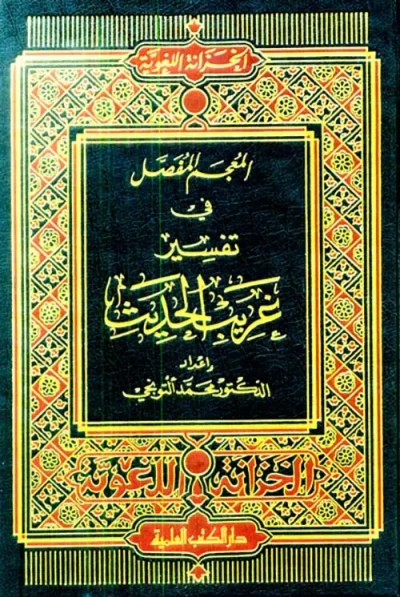 الخزانة اللغوية
المعجم المفصل
في
تفسير
غريب الحديث
إعداد
الدكتور محمد التونجي
الخزانة اللغوية
دار الكتب العلمية